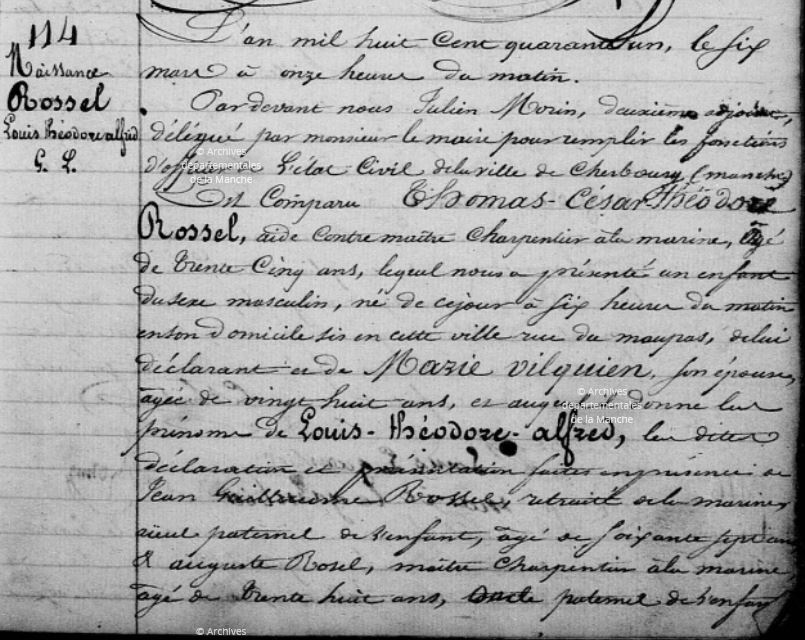 114
Naissance
Rossel
Louis théodore alfred
G. L.
L'an mil huit Cent quarante un, le six
mars à onze heures du matin.
Pardevant nous Julien Morin, deuxième adjoint,
délégué par monsieur le maire pour remplir les fonctions
d'officier de L'état Civil de la ville de Cherbourg (manche)
Est Comparu Thomas-César-Théodore
Rossel, aide Contre maître Charpentier à la marine, âgé
de trente Cinq ans, lequel nous a présenté un enfant
du sexe masculin, né de ce jour à six heures du matin
en son Domicile sis en cette ville rue du maupas, de lui
déclarant et de Marie vilquien, son épouse,
âgée de vingt huit ans, et auquel donné les
prénoms de Louis-théodore-alfred, les dites
déclaration et présentation faites en présence de
Jean Guillaume Rossel, retraité de la marine,
aïeul paternel de l'enfant, âgé de soixante sept ans
& auguste Rosel, maître Charpentier à la marine
âgé de trente huit ans, oncle paternel de l'enfant
© Archives
départementales
de la Manche
© Archives
départementales
de la Manche
© Archives